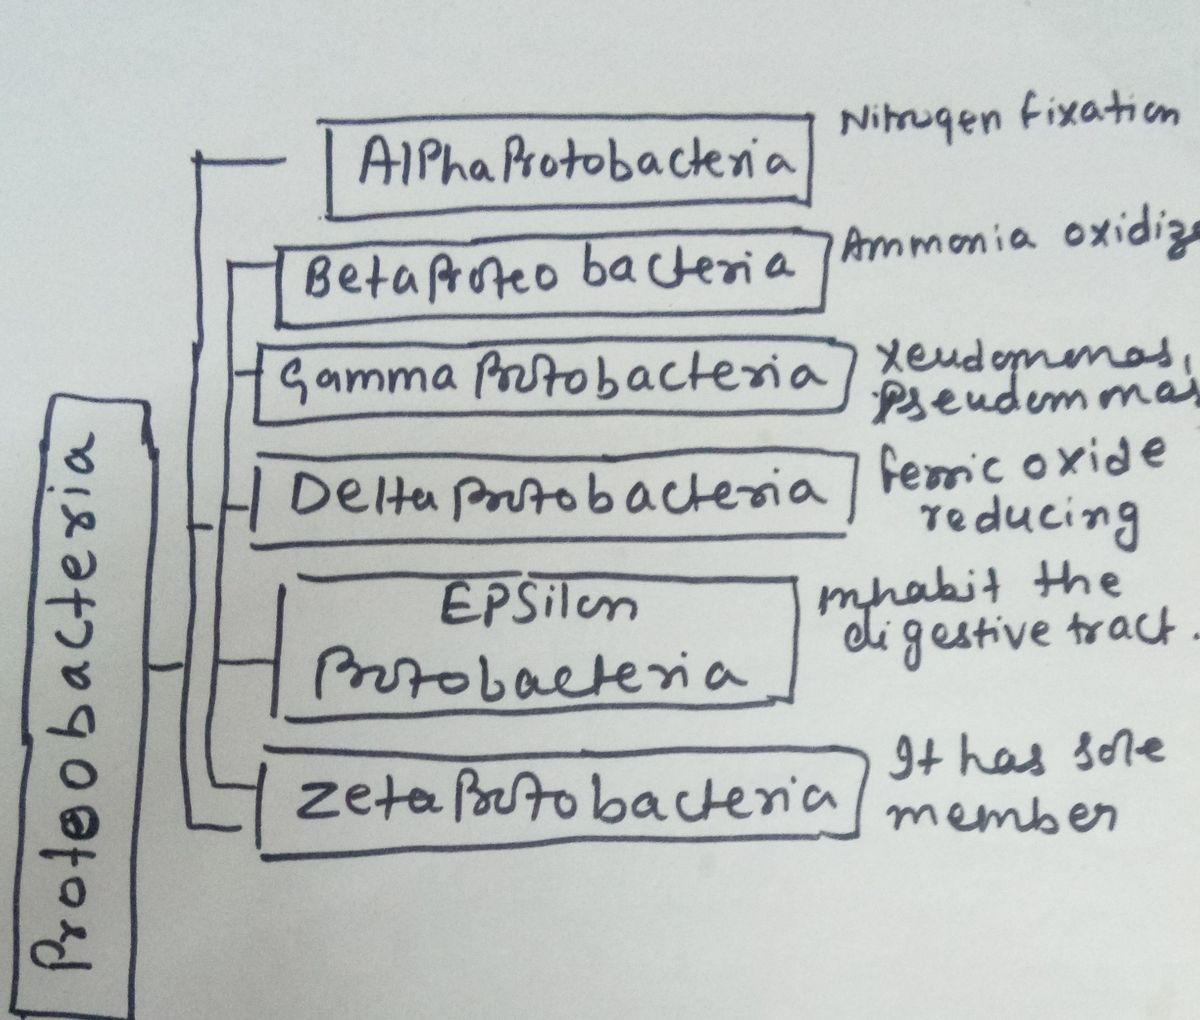 Proteobacteria
AlPhaProtobacteria
Nitrogen fixation
BetaProteo bacteria
Ammonia oxidize
Gamma Protobacteria
Xeudomonas,
Pseudommas
Delta protobacteria
ferric oxide
reducing
EPSilon
Protobacteria
inhabit the
digestive tract.
zetaProtobacteria
It has sole
member